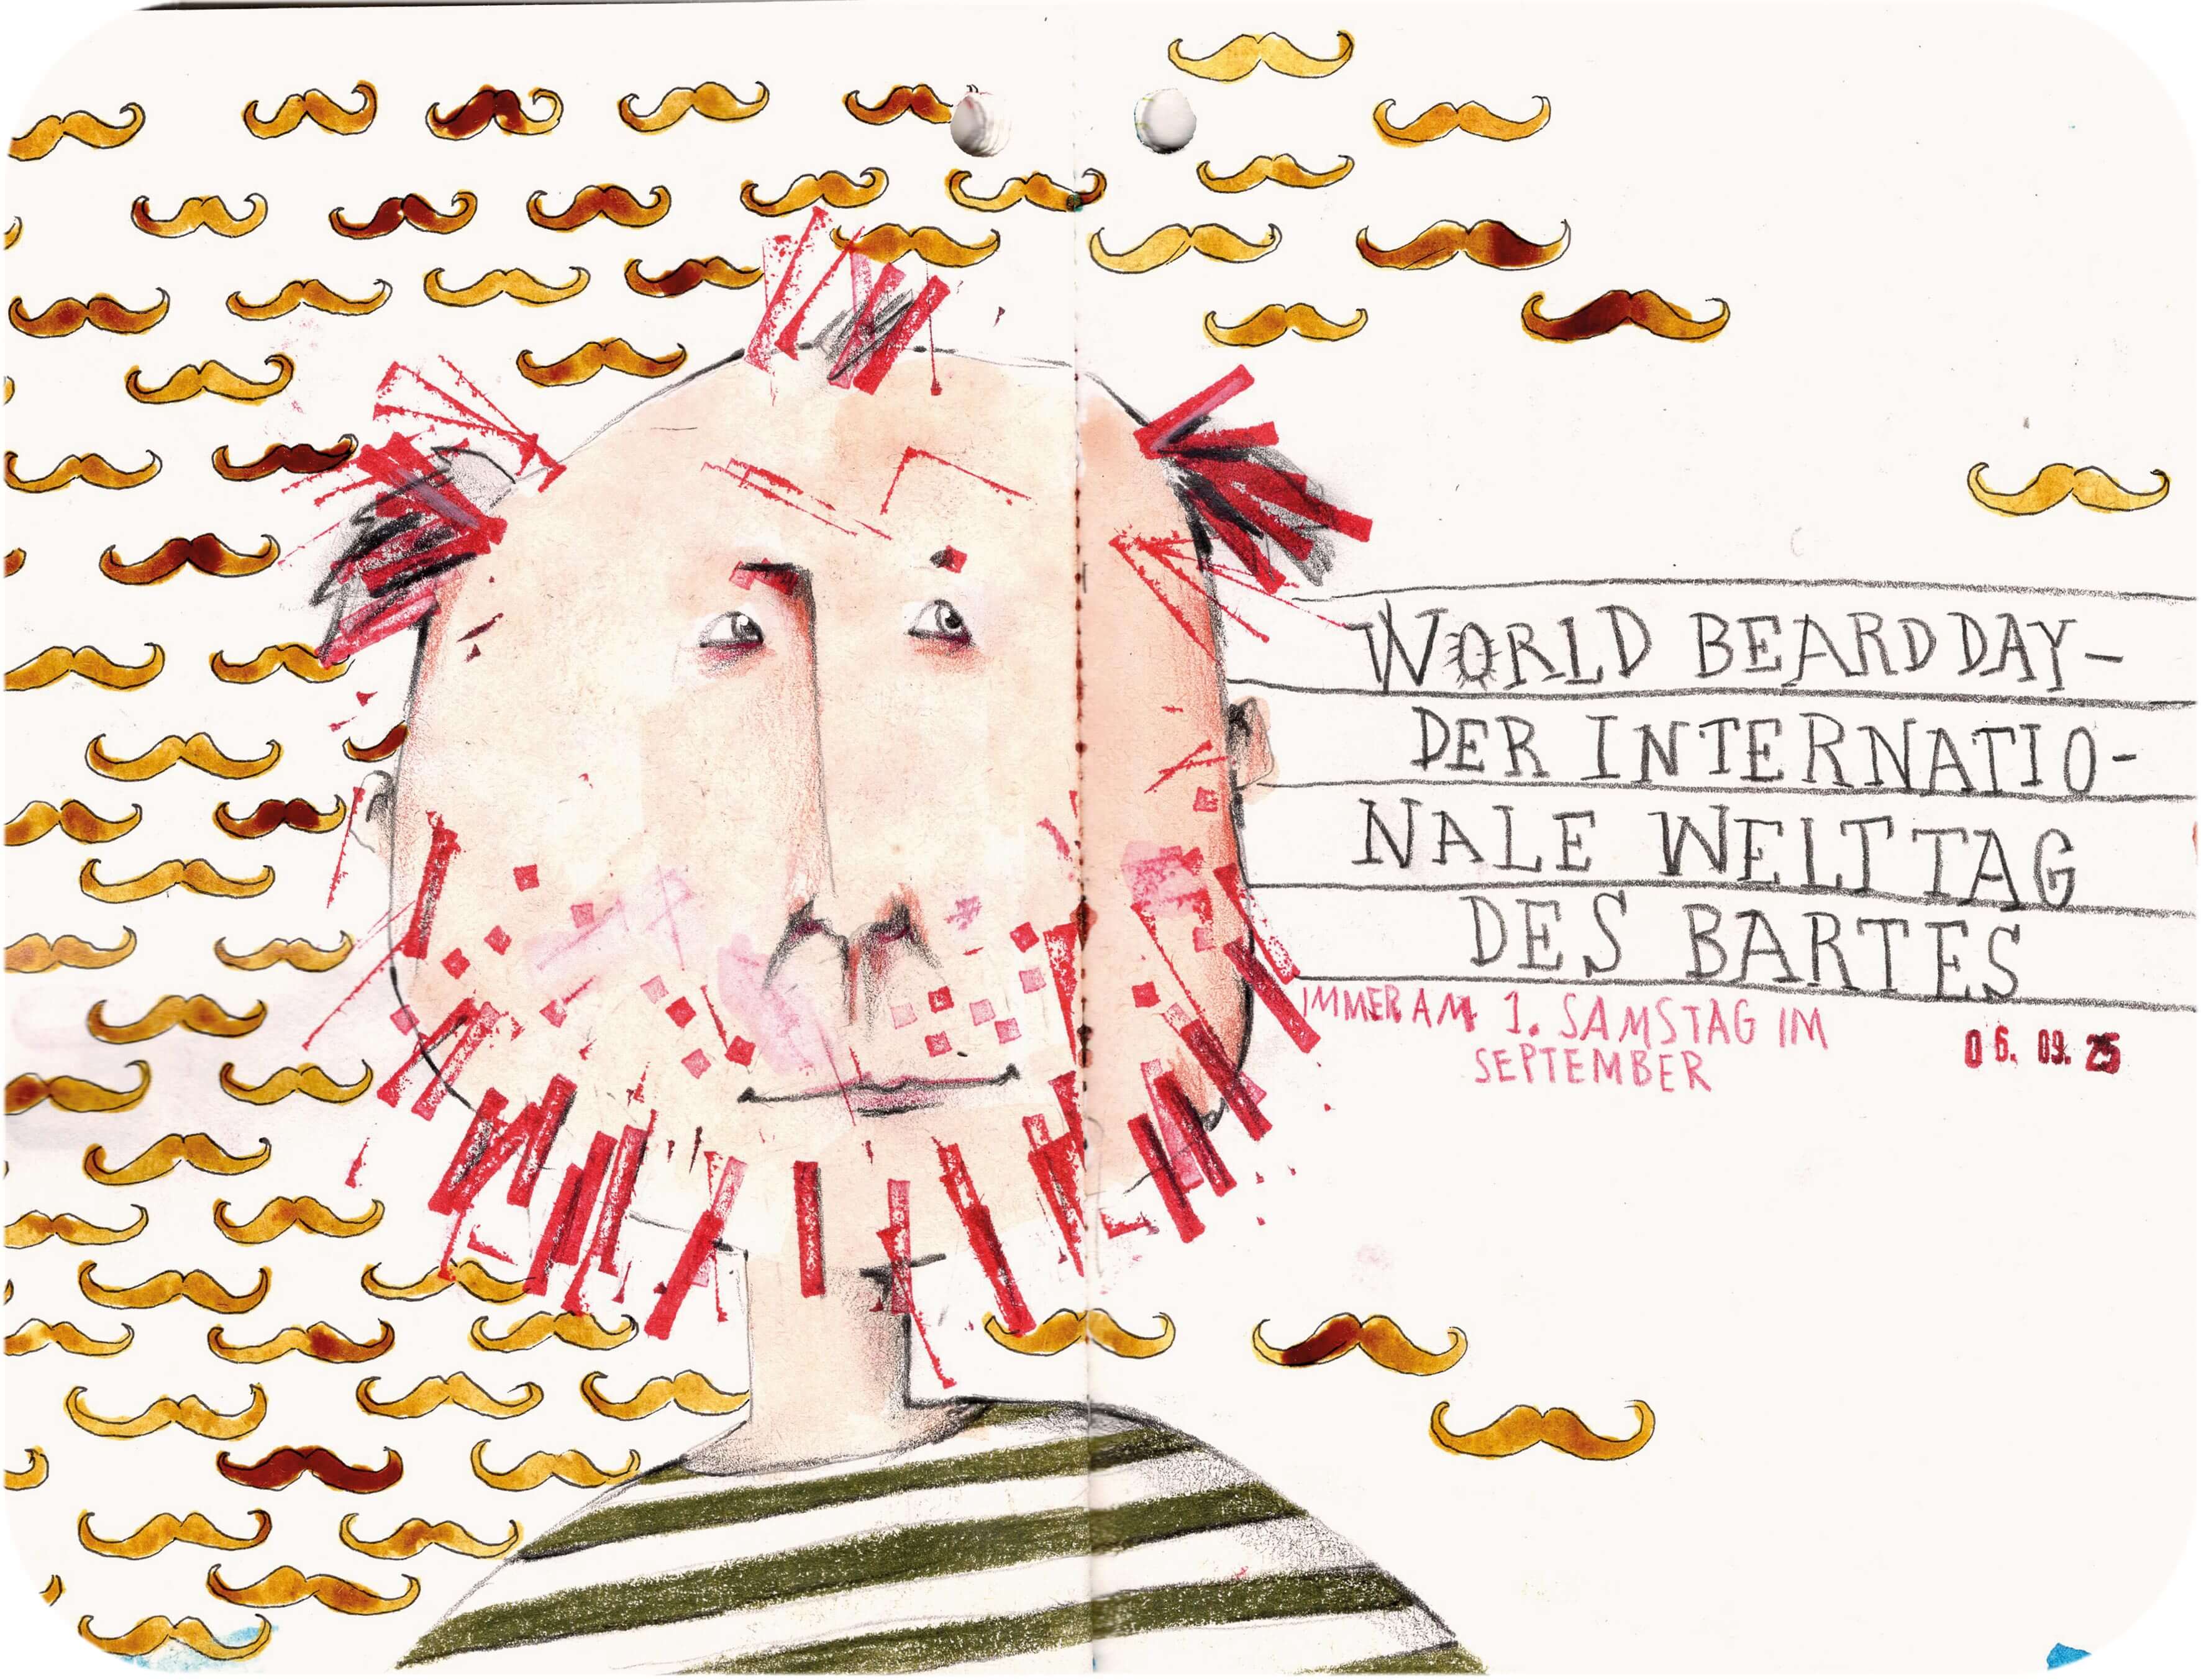 WORLD BEARD DAY-
DER INTERNATIO-
NALE WELTTAG
DES BARTES
IMMER AM 1. SAMSTAG IM
SEPTEMBER
06. 09. 25